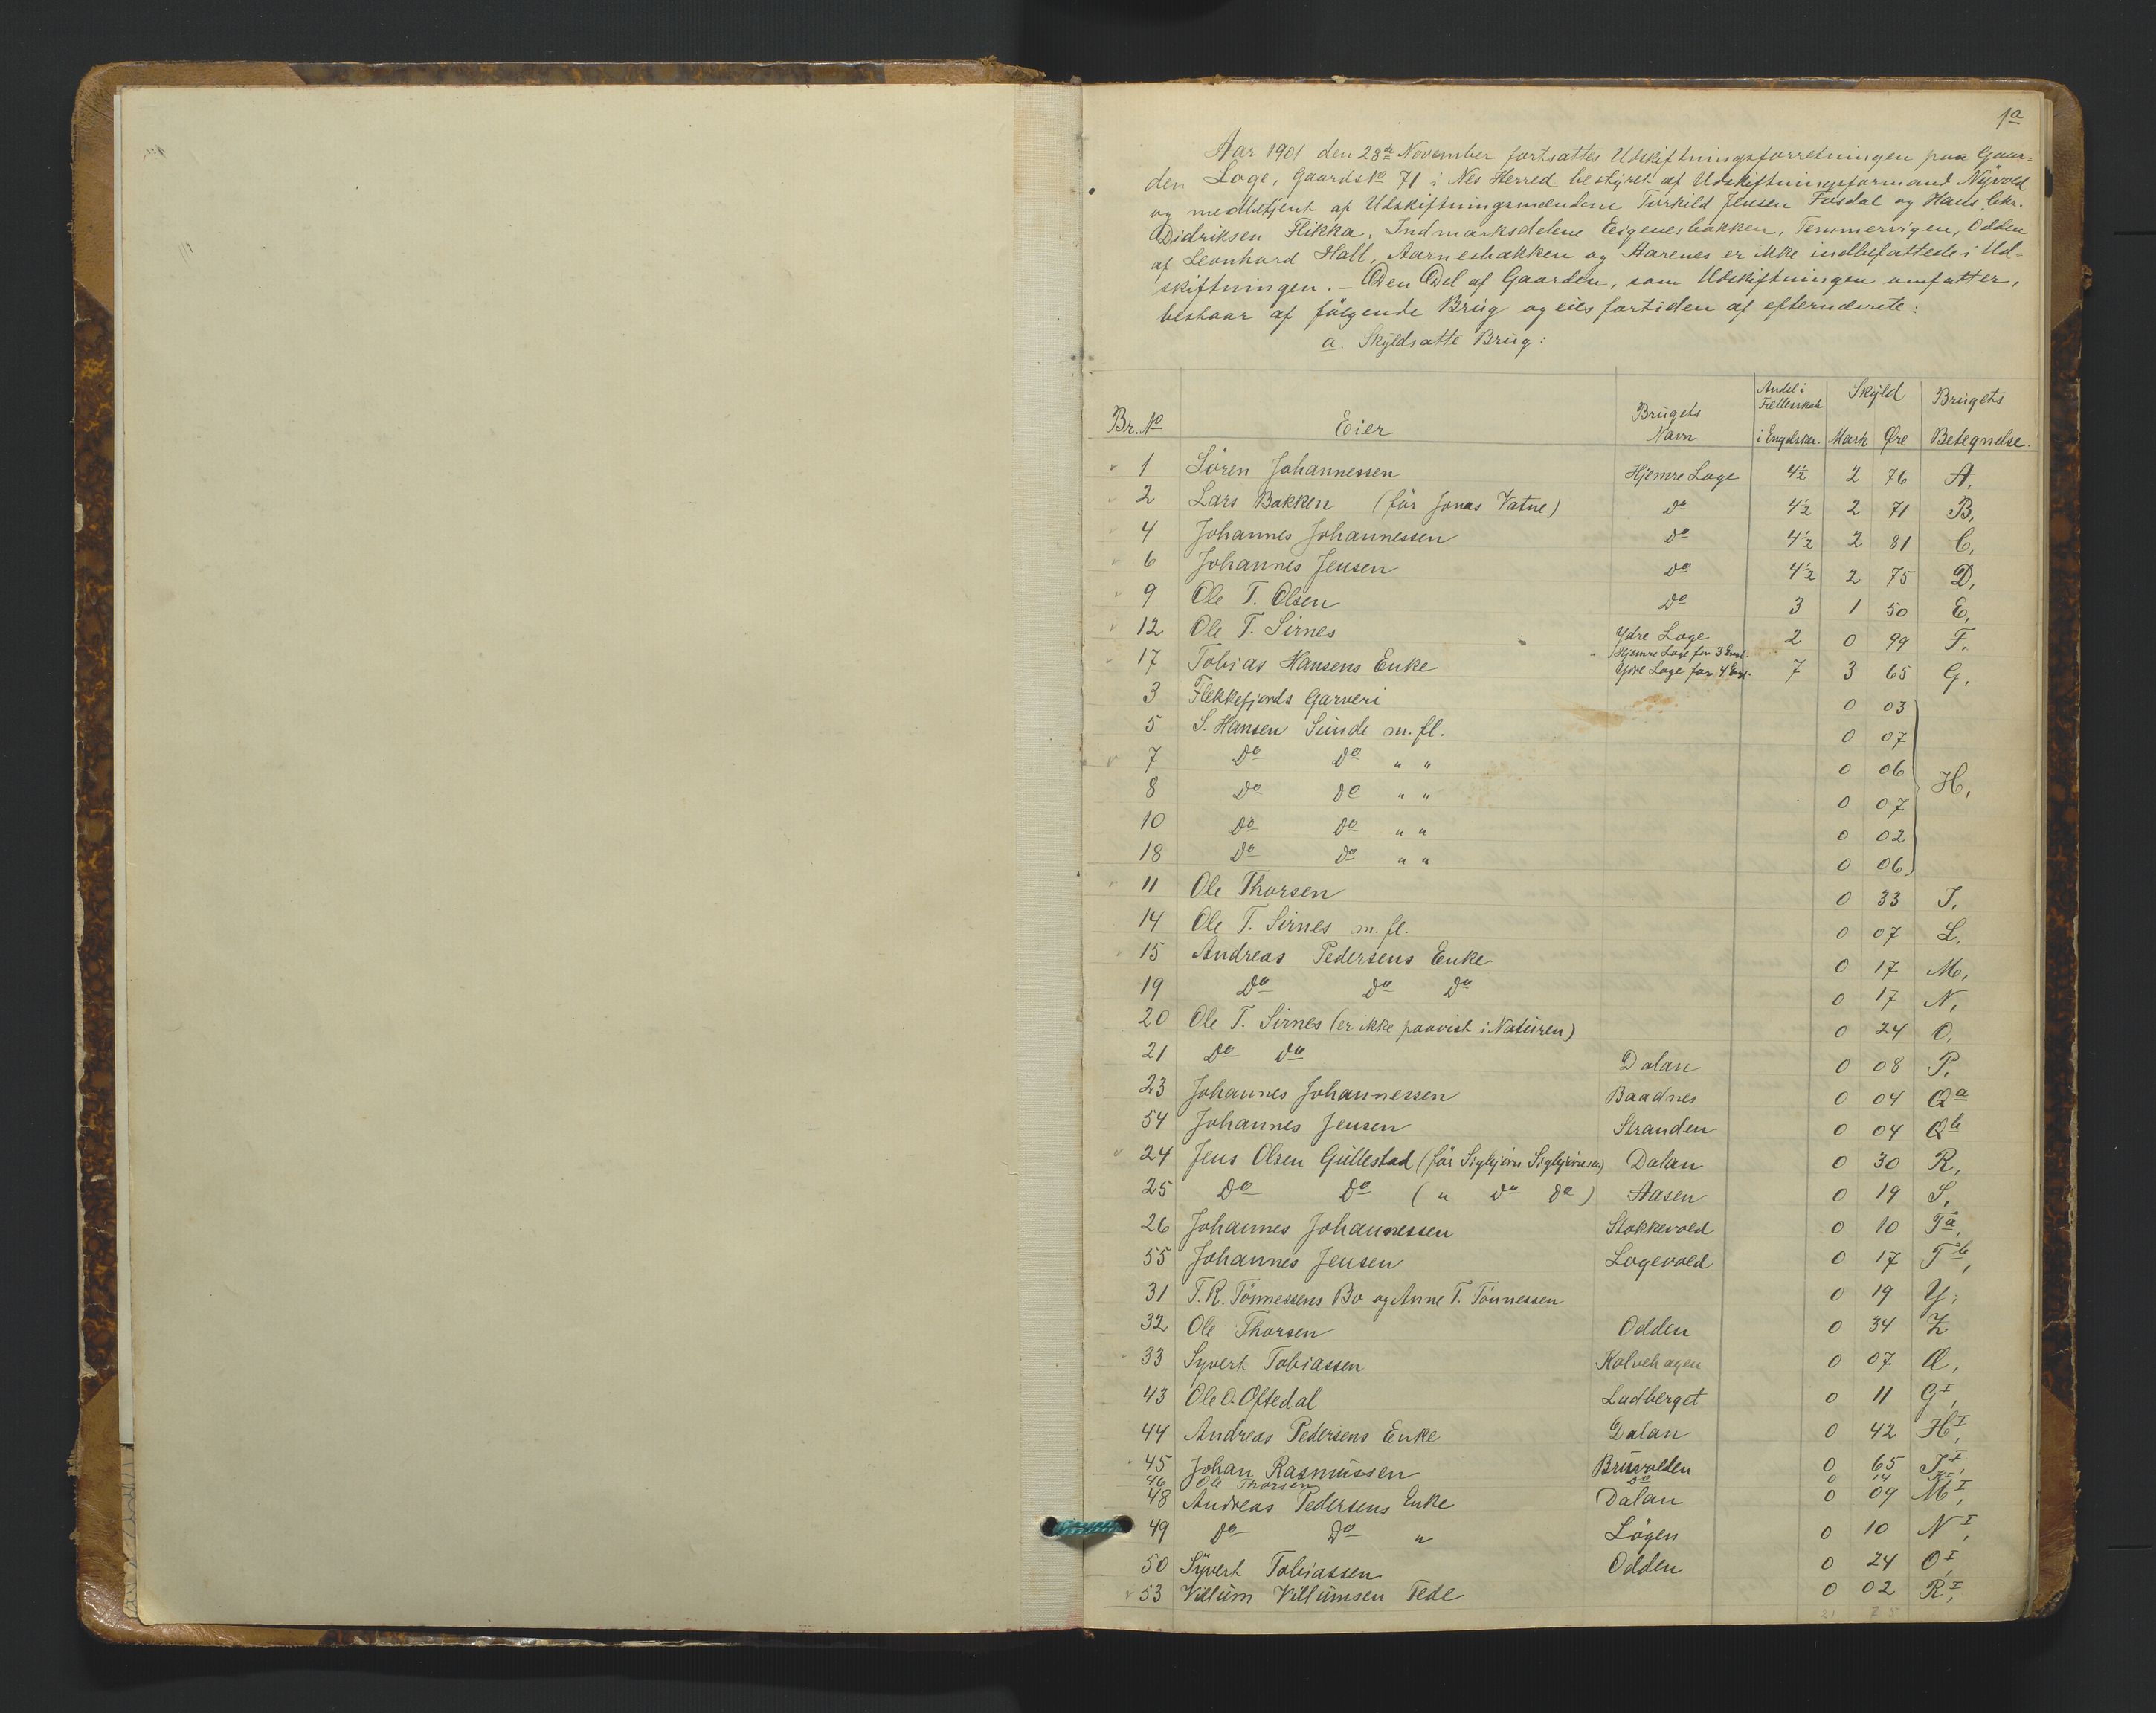 1a
Aar 1901 den 28de November fortsattes Udskiftningsforretningen paa Gaar-
den Loge, Gaards No 71 i Nes Herred bestyret af Udskiftningsformand Nyvold
og medbetjent af Udskiftningsmændene Torkild Jensen Fosdal og Hans Chr.
Didriksen Flikka. Indmarksdelene Eigenesbakken, Temmervigen, Odden
af Leonhard Hall, Aarnesbakken og Aarenes er ikke indbefattede i Ud-
skiftningen. – Den Del af Gaarden, som Udskiftningen omfatter,
bestaar af følgende Brug og eies fortiden af efternævnte:
a. Skyldsatte Brug:
Br. No Eier Brugets Navn Andel i Fællesskab i Engelsker. Skyld Mark Øre Brugets Betegnelse.
1 Sören Johannessen Hjemre Loge 4½ 2 76 A,
2 Lars Bakken (før Jonas Vatne) Do 4½ 2 71 B,
4 Johannes Johannessen Do 4½ 2 81 C,
6 Johannes Jensen Do 4½ 2 75 D,
9 Ole T. Olsen Do 3 1 50 E,
12 Ole T. Sirnes Ydre Loge 2 0 99 F.
17 Tobias Hansens Enke Hjemre Loge for 3 Engl. Ydre Loge for 4 Engl. 7 3 65 G,
3 Flekkefjords Garveri 0 03
5 S. Hansen Sunde m. fl. 0 07
7 Do Do " " 0 06
8 Do Do " " 0 07 H,
10 Do Do " " 0 02
18 Do Do " " 0 06
11 Ole Thorsen 0 33 I,
14 Ole T. Sirnes m. fl. 0 07 L,
15 Andreas Pedersens Enke 0 17 M,
19 Do Do Do 0 17 N,
20 Ole T. Sirnes (er ikke paavist i Naturen) 0 24 O,
21 Do Do Dalan 0 08 P.
23 Johannes Johannessen Baadnes 0 04 Qa
54 Johannes Jensen Stranden 0 04 Qb
24 Jens Olsen Gullestad (før Sigbjørn Sigbjørnsen) Dalan 0 30 R,
25 Do Do ( " Do Do ) Aasen 0 19 S,
26 Johannes Johannessen Stokkevold 0 10 Ta,
55 Johannes Jensen Logevold 0 17 Tb,
31 T. R. Tönnessens Bo og Anne T. Tönnessen 0 19 Y,
32 Ole Thorsen Odden 0 34 Z
33 Syvert Tobiassen Kalvehagen 0 07 Æ,
43 Ole O. Oftedal Ladberget 0 11 GI,
44 Andreas Pedersens Enke Dalan 0 42 HI,
45 Johan Rasmussen Brusvolden 0 65 II,
46 Ole Thorsen Do 0 14
48 Andreas Pedersens Enke Dalan 0 09 MI,
49 Do Do " Lögen 0 10 NI,
50 Syvert Tobiassen Odden 0 24 OI,
53 Villum Villumsen Fede 0 02 RI,